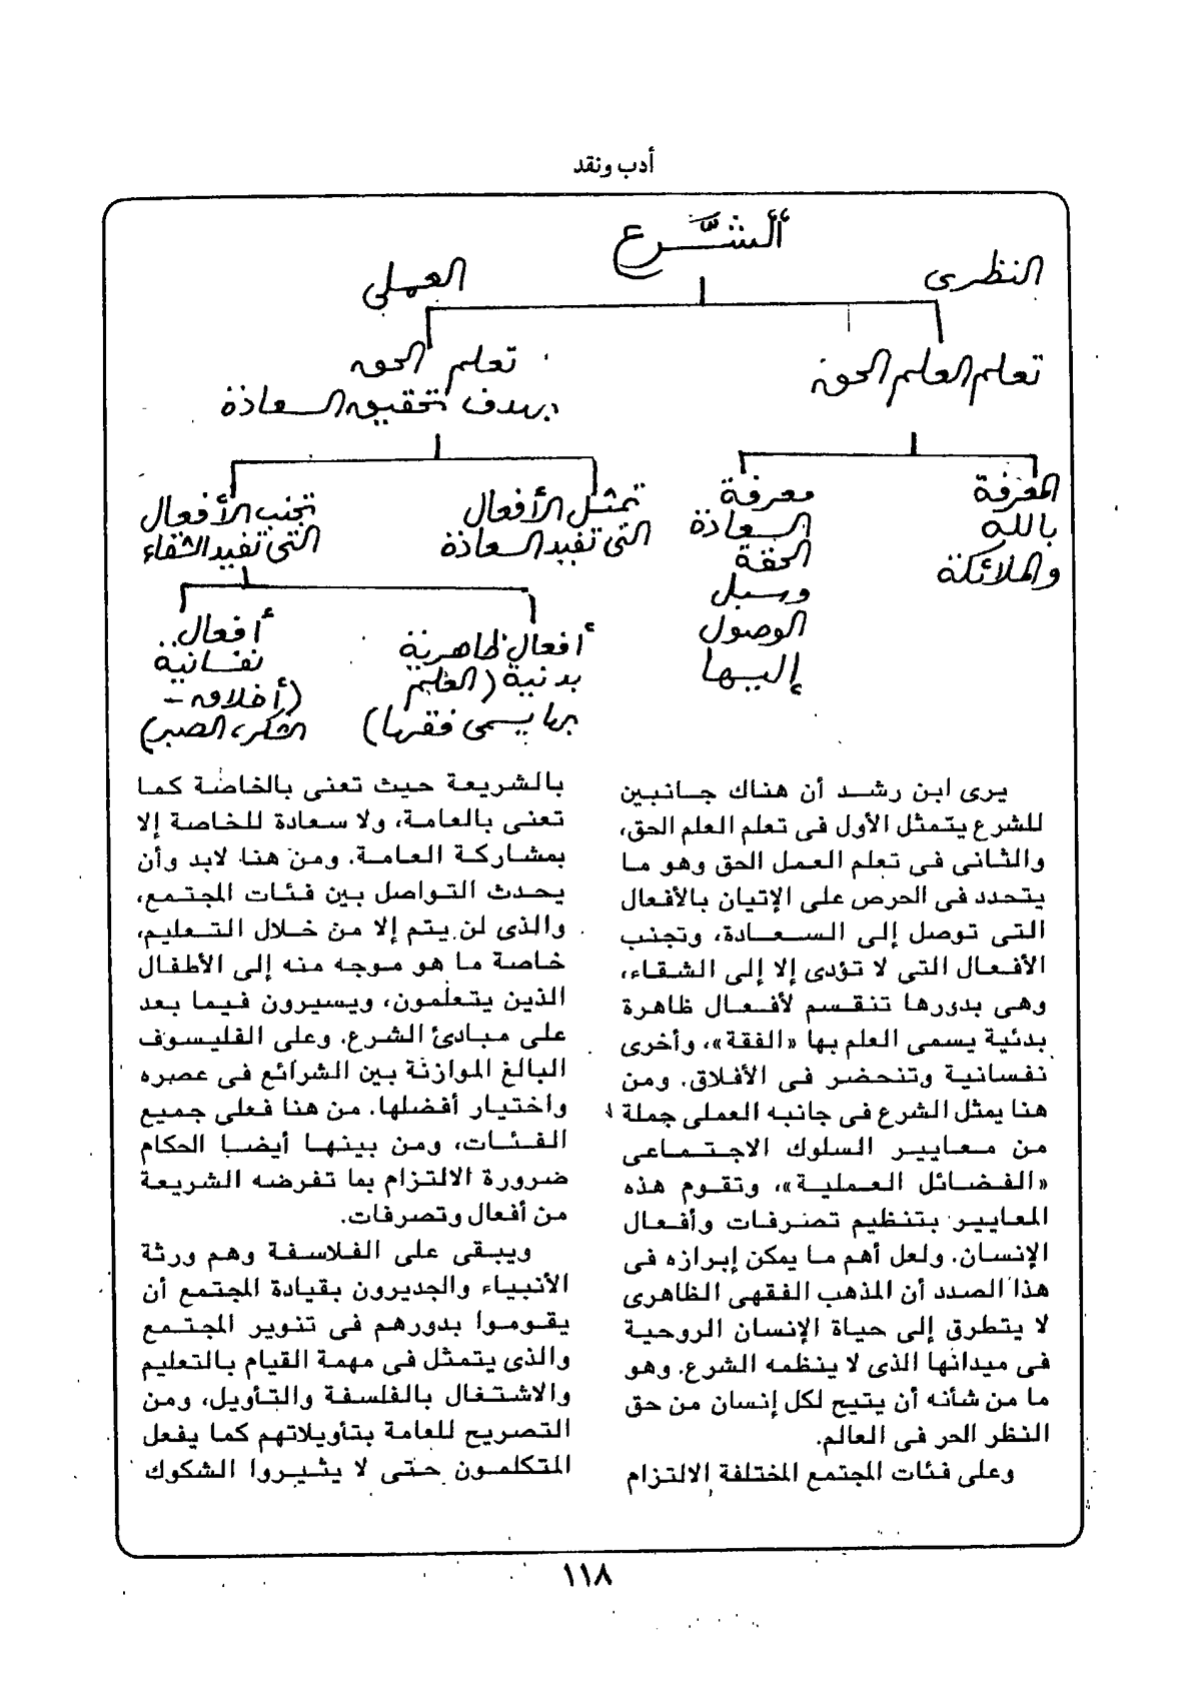 أدب ونقد
"الشَّرع
النظرى
العملى
تعلم العلم الحق
تعلم الحق
بهدف تحقيق السعادة
المعرفة
بالله
والملائكة
معرفة
السعادة
الحقة
وسبل
الوصول
إليها
تمثل الأفعال
التى تفيد السعادة
تجنب الأفعال
التى تفيد الشقاء
أفعال ظاهرية
بدنية (العلم
بها يسمى فقها)
أفعال..
نفسانية
(أخلاق –
الشكر، الصبر)
يرى ابن رشد أن هناك جانبين
للشرع يتمثل الأول فى تعلم العلم الحق،
والثانى فى تعلم العمل الحق وهو ما
يتحدد فى الحرص على الإتيان بالأفعال
التى توصل إلى السعادة، وتجنب
الأفعال التى لا تؤدى إلا إلى الشقاء،
وهى بدورها تنقسم لأفعال ظاهرة
بدئية يسمى العلم بها «الفقة»، وأخرى
نفسانية وتنحضر فى الأفلاق. ومن
هنا يمثل الشرع فى جانبه العملى جملة
من معايير السلوك الاجتماعى
«الفضائل العملية»، وتقوم هذه
المعايير بتنظيم تصرفات وأفعال
الإنسان. ولعل أهم ما يمكن إبرازه فى
هذا الصدد أن المذهب الفقهى الظاهرى
لا يتطرق إلى حياة الإنسان الروحية
فى ميدانها الذى لا ينظمه الشرع. وهو
ما من شأنه أن يتيح لكل إنسان من حق
النظر الحر فى العالم.
وعلى فئات المجتمع المختلفة الالتزام
بالشريعة حيث تعنى بالخاصة كما
تعنى بالعامة، ولا سعادة للخاصة إلا
بمشاركة العامة. ومن هنا لابد وأن
يحدث التواصل بين فئات المجتمع،
والذى لن يتم إلا من خلال التعليم،
خاصة ما هو موجه منه إلى الأطفال
الذين يتعلمون، ويسيرون فيما بعد
على مبادئ الشرع. وعلى الفليسوف
البالغ الموازنة بين الشرائع فى عصره
واختيار أفضلها. من هنا فعلى جميع
الفئات، ومن بينها أيضا الحكام
ضرورة الالتزام بما تفرضه الشريعة
من أفعال وتصرفات.
ويبقى على الفلاسفة وهم ورثة
الأنبياء والجديرون بقيادة المجتمع أن
يقوموا بدورهم فى تنوير المجتمع
والذى يتمثل فى مهمة القيام بالتعليم
والاشتغال بالفلسفة والتأويل، ومن
التصريح للعامة بتأويلاتهم كما يفعل
المتكلمون حتى لا يثيروا الشكوك
١١٨